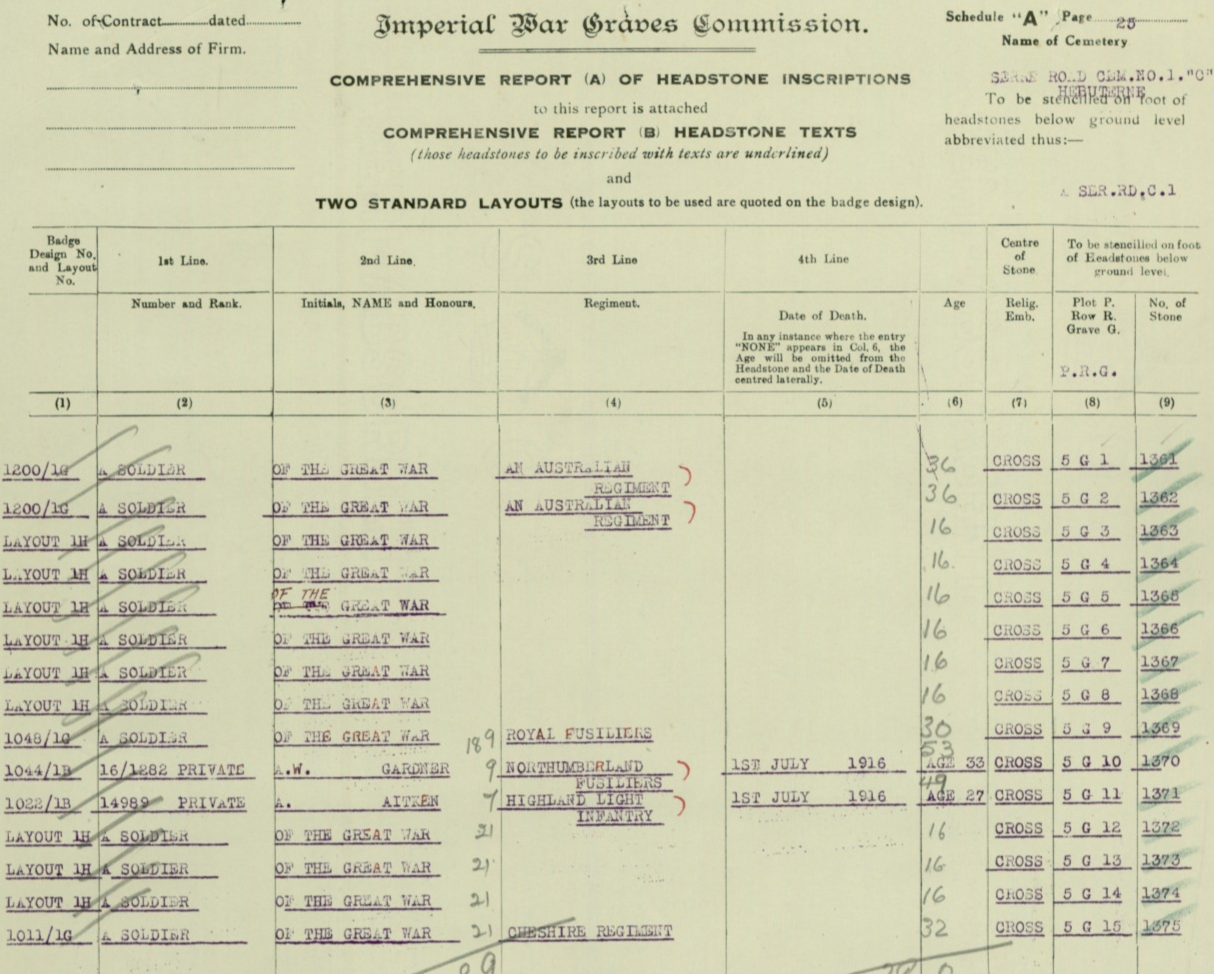 No. of Contract dated
Name and Address of Firm.
Imperial War Graves Commission.
COMPREHENSIVE REPORT (A) OF HEADSTONE INSCRIPTIONS
to this report is attached
COMPREHENSIVE REPORT (B) HEADSTONE TEXTS
(those headstones to be inscribed with texts are underlined)
and
TWO STANDARD LAYOUTS (the layouts to be used are quoted on the badge design).
Schedule "A" Page 25
Name of Cemetery
SERRE ROAD CEM.NO.1."C"
HEBUTERNE
To be stencilled on foot of
headstones below ground level
abbreviated thus:—
SER.RD.C.1
Badge Design No. and Layout No. 1st Line. 2nd Line. 3rd Line 4th Line Centre of Stone. To be stencilled on foot of Headstones below ground level.
Number and Rank. Initials, NAME and Honours. Regiment. Date of Death. Age Relig. Emb. Plot P. Row R. Grave G. No. of Stone
In any instance where the entry
"NONE" appears in Col. 6, the
Age will be omitted from the
Headstone and the Date of Death
centred laterally.
P.R.G.
(1) (2) (3) (4) (5) (6) (7) (8) (9)
1200/1G A SOLDIER OF THE GREAT WAR AN AUSTRALIAN REGIMENT 36 CROSS 5 G 1 1361
1200/1G A SOLDIER OF THE GREAT WAR AN AUSTRALIAN REGIMENT 36 CROSS 5 G 2 1362
LAYOUT 1H A SOLDIER OF THE GREAT WAR 16 CROSS 5 G 3 1363
LAYOUT 1H A SOLDIER OF THE GREAT WAR 16 CROSS 5 G 4 1364
LAYOUT 1H A SOLDIER OF THE GREAT WAR 16 CROSS 5 G 5 1365
LAYOUT 1H A SOLDIER OF THE GREAT WAR 16 CROSS 5 G 6 1366
LAYOUT 1H A SOLDIER OF THE GREAT WAR 16 CROSS 5 G 7 1367
LAYOUT 1H A SOLDIER OF THE GREAT WAR 16 CROSS 5 G 8 1368
1048/1G A SOLDIER OF THE GREAT WAR 189 ROYAL FUSILIERS 30 CROSS 5 G 9 1369
1044/1B 16/1282 PRIVATE A.W. GARDNER 9 NORTHUMBERLAND FUSILIERS 1ST JULY 1916 53 AGE 33 CROSS 5 G 10 1370
1022/1B 14989 PRIVATE A. AITKEN 7 HIGHLAND LIGHT INFANTRY 1ST JULY 1916 49 AGE 27 CROSS 5 G 11 1371
LAYOUT 1H A SOLDIER OF THE GREAT WAR 21 16 CROSS 5 G 12 1372
LAYOUT 1H A SOLDIER OF THE GREAT WAR 21 16 CROSS 5 G 13 1373
LAYOUT 1H A SOLDIER OF THE GREAT WAR 21 16 CROSS 5 G 14 1374
1011/1G A SOLDIER OF THE GREAT WAR 21 CHESHIRE REGIMENT 32 CROSS 5 G 15 1375